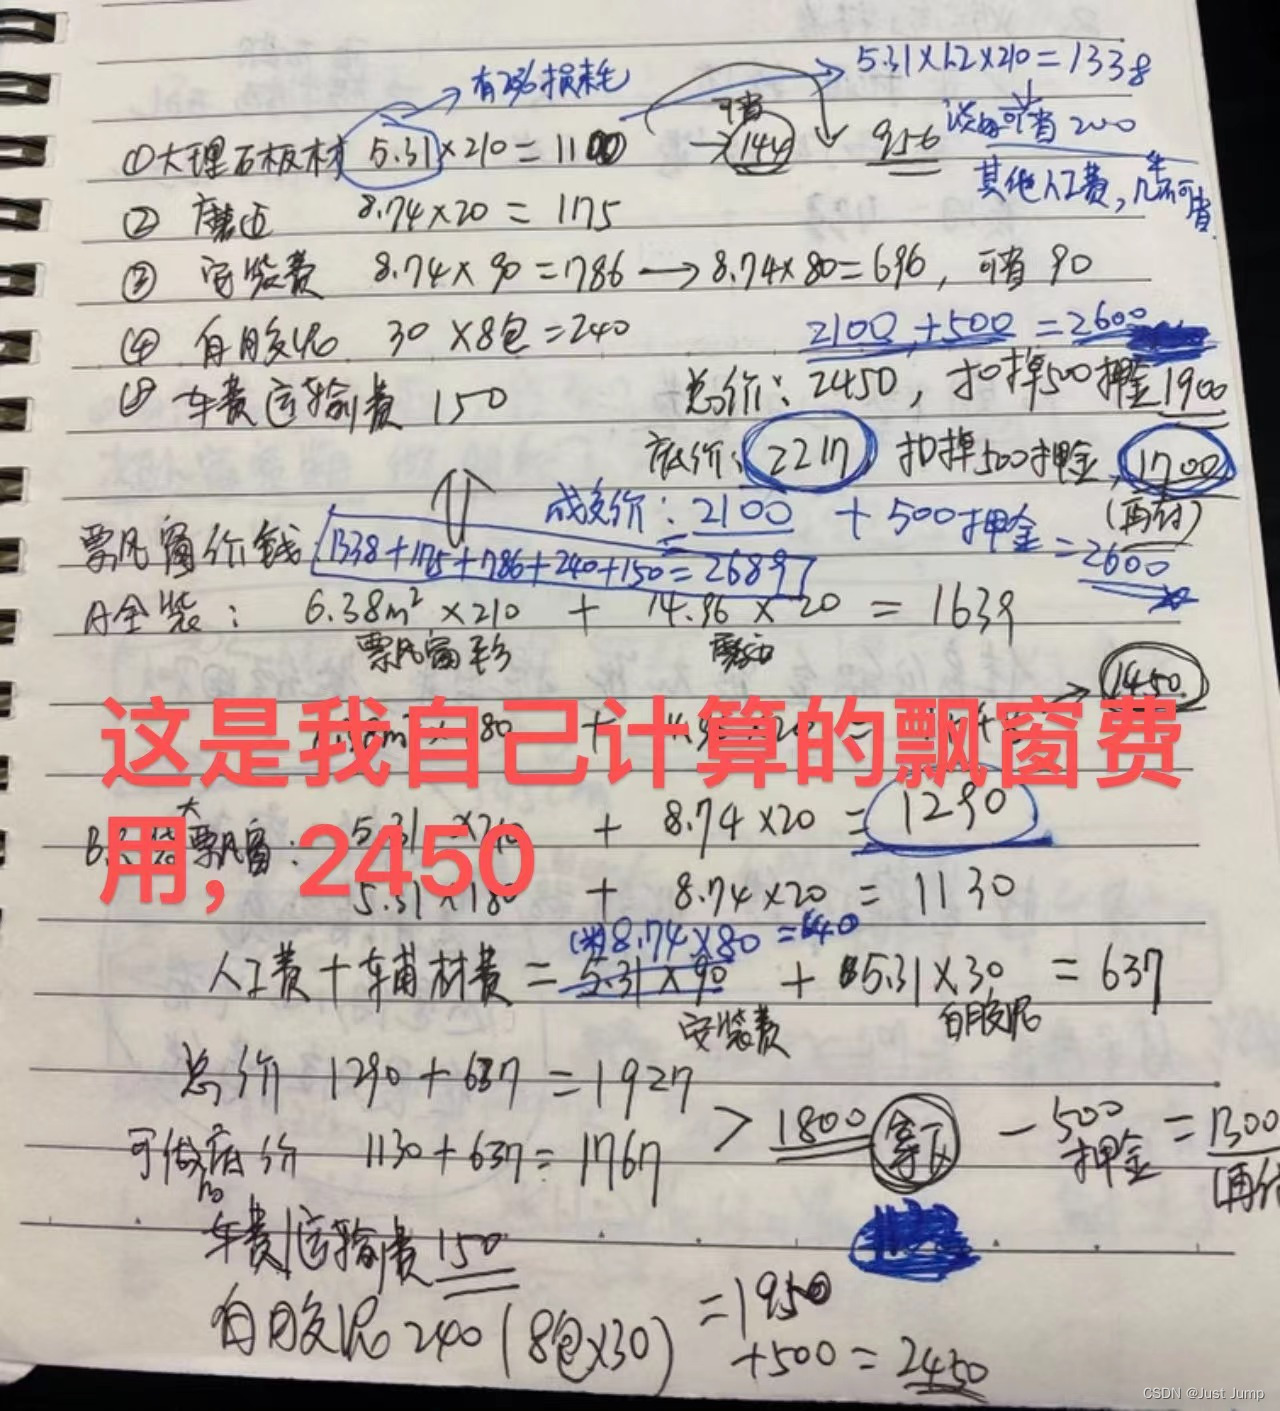 5.31×1.2×210=1338
有2%损耗
可省
谈的可省 200
①大理石板材 5.31×210=1100 →144 956
其他人工费,几乎不可省
② 磨边 8.74×20 = 175
③ 安装费 8.74×90=786→8.74×80=696, 可省 90
④ 白胶泥 30×8包=240
2100+500=2600
⑤ 车费运输费 150
总价: 2450, 扣掉500押金 1900
底价: 2217 扣掉500押金, 1700
(再付)
成交价: 2100 + 500押金 =2600
票风窗价钱
1338+175+786+240+150=2689
A全装: 6.38m²×210 + 14.96×20 = 1639
票风窗
磨边
1450
这是我自己计算的飘窗费
用，2450
大票风窗: 5.31×210 + 8.74×20 = 1290
5.31×180 + 8.74×20 = 1130
8.74×80=640
人工费+车辅材费= 5.31×90 + 5.31×30 = 637
安装费 白胶泥
总价 1290+637=1927
>1800 拿下 -500押金=1300
可做底价 1130+637=1767
车费/运输费150
白胶泥 240 (8包×30) =1950
+500=2450
CSDN @Just Jump